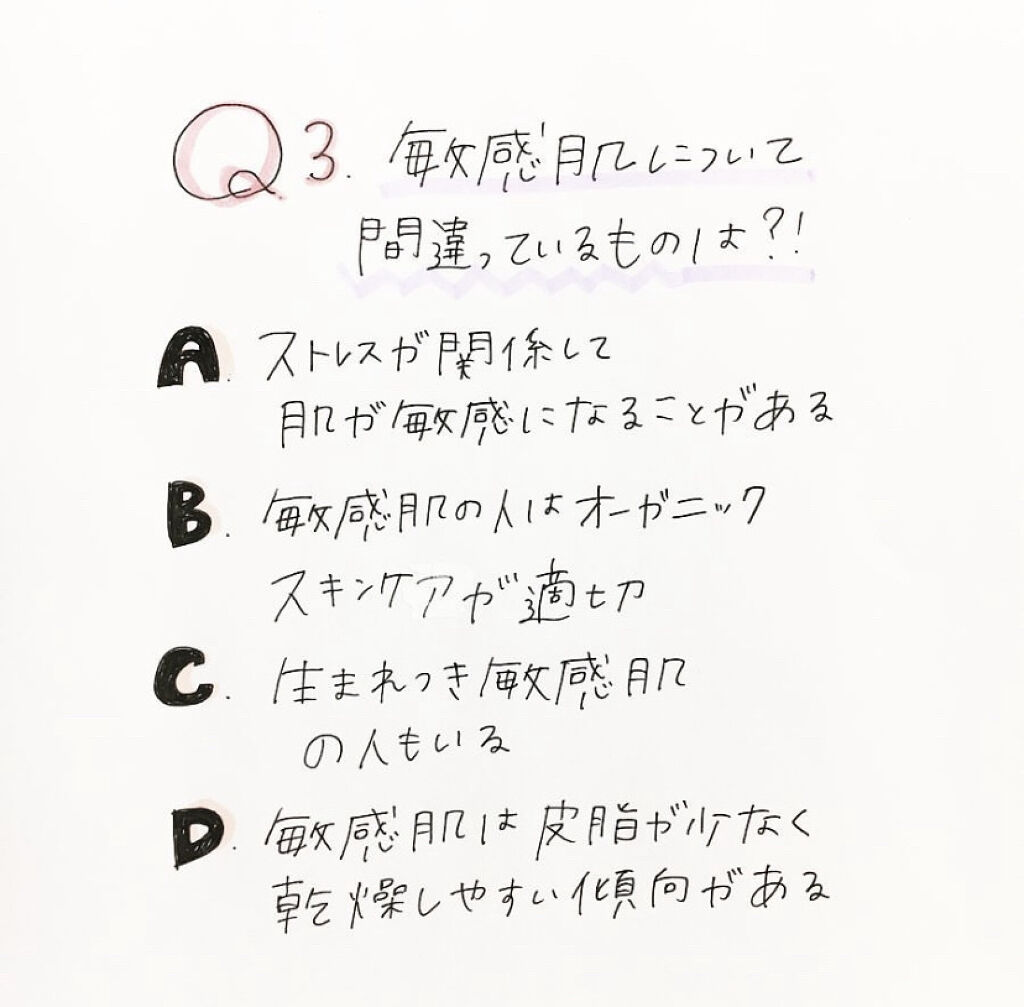 Q3. 敏感肌について
間違っているものは?!
A. ストレスが関係して
肌が敏感になることがある
B. 敏感肌の人はオーガニック
スキンケアが適切
C. 生まれつき敏感肌
の人もいる
D. 敏感肌は皮脂が少なく
乾燥しやすい傾向がある